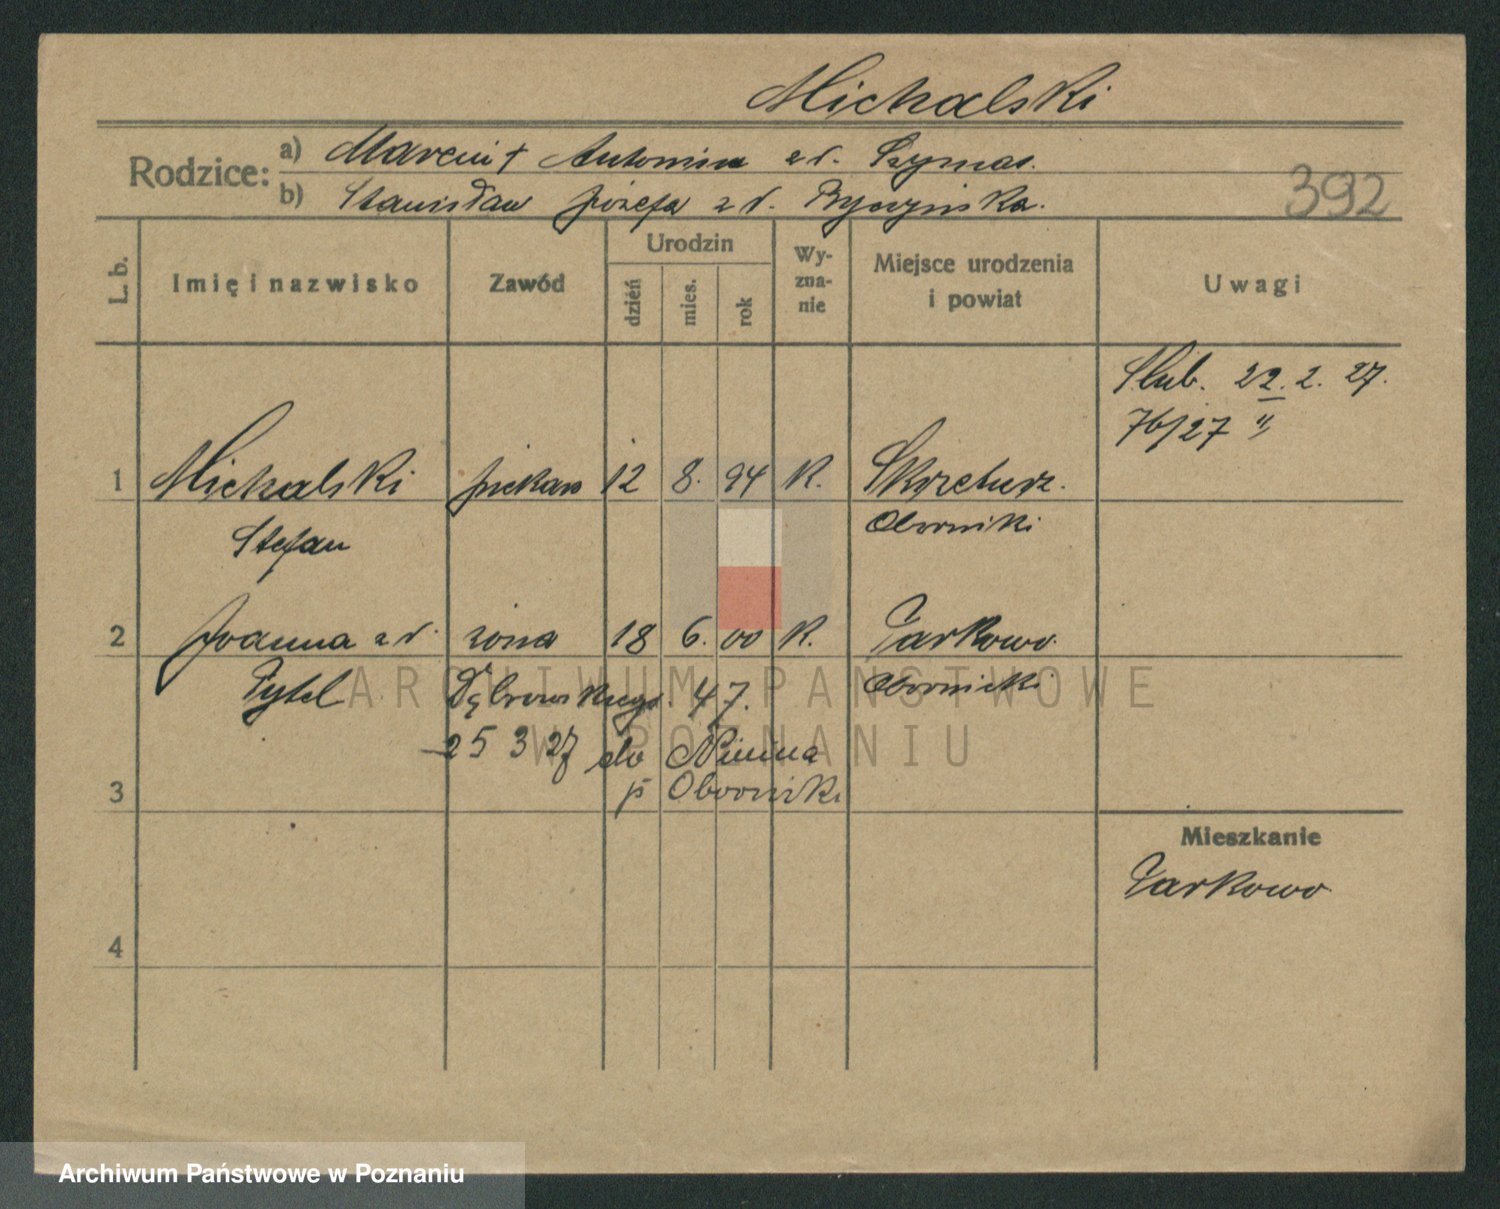 Michalski
Rodzice: a) Marcin † Antonina z d. Szymas.
b) Stanisław Józefa z d. Byczyńska.
392
L. b. Imię i nazwisko Zawód Urodzin dzień mies. rok Wy-zna-nie Miejsce urodzenia i powiat Uwagi
Slub. 22. 2. 27.
76/27 "
1 Michalski piekarz 12 8. 94 K. Skrzetusz.
Stefan Oborniki
2 Joanna z d. żona 18 6. 00 K. Tarkowo.
Pytel Dąbrowskiego. 47. Oborniki
25 3 27 do Ninina
p Oborniki
3
Mieszkanie
Tarkowo
4
ARCHIWUM PAŃSTWOWE
W POZNANIU
Archiwum Państwowe w Poznaniu